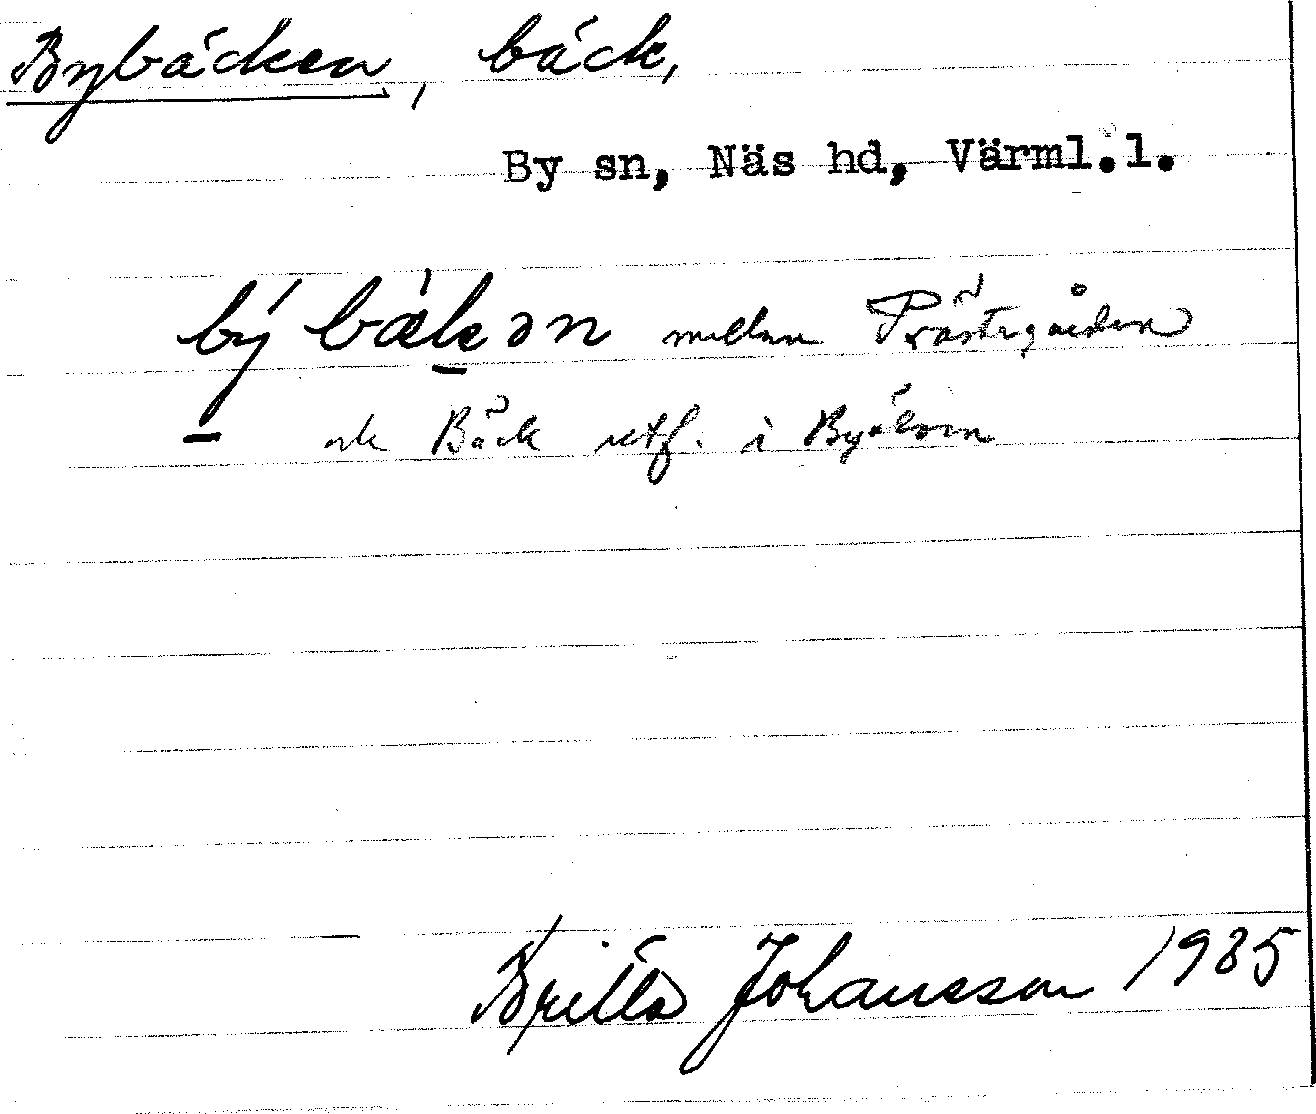 Bybäcken, bäck,
By sn, Näs hd, Värml.l.
bý bæ̀kən mellan Prästegården
och Bäck utfl. i Byälven
Britta Johansson 1935